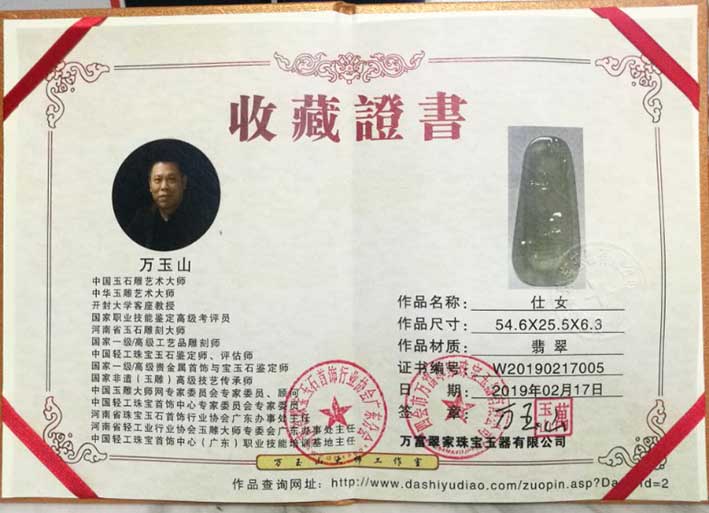 收藏證書
万玉山
中国玉石雕艺术大师
中华玉雕艺术大师
开封大学客座教授
国家职业技能鉴定高级考评员
河南省玉石雕刻大师
国家一级/高级工艺品雕刻师
中国轻工珠宝玉石鉴定师、评估师
国家一级/高级贵金属首饰与宝玉石鉴定师
国家非遗（玉雕）高级技艺传承师
中国玉雕大师网专家委员会专家委员、顾问
中国轻工珠宝首饰中心专家委员会专家委员
河南省珠宝玉石首饰行业协会广东办事处主任
河南省轻工业行业协会玉雕大师专委会广东办事处主任
中国轻工珠宝首饰中心（广东）职业技能培训基地主任
作品名称：仕女
作品尺寸：54.6X25.5X6.3
作品材质：翡翠
证书编号：W20190217005
日期：2019年02月17日
签章：万玉山
万富翠家珠宝玉器有限公司
万玉山大师工作室
作品查询网址：http://www.dashiyudiao.com/zuopin.asp?
id=2